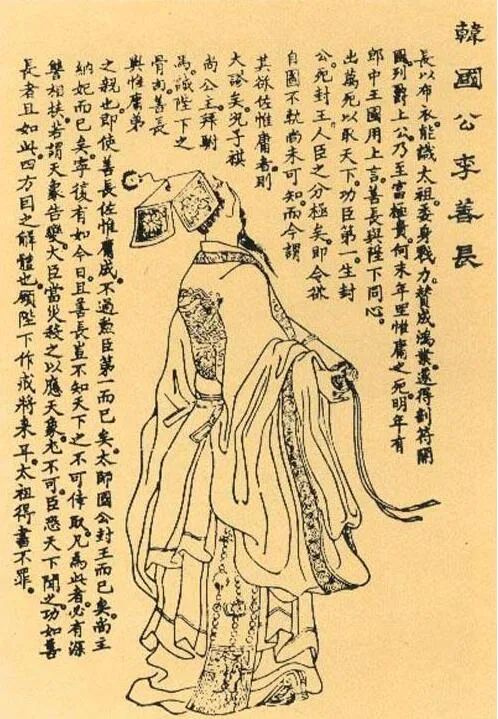 韓國公李善長
長以布衣能識太祖。委身戮力。贊成鴻業。遂得剖符開
國列爵上公。乃至富極貴。何末年坐惟庸之死。明年有
郎中王國用上言。善長與陛下同心。
出萬死以取天下。功臣第一。生封
公。死封王。人臣之分極矣。即令欲
自圖不軌。尚未可知。而今謂
其欲佐惟庸者。則
大謬矣。況子祺
尚公主。拜駙
馬。誠陛下之
骨肉。善長
與惟庸第
之親也。即使善長佐惟庸成。不過勳臣第一而已矣。太師國公封王而已矣。尚主
納妃而已矣。寧復有如今日。且善長豈不知天下之不可倖取。凡為此者。必有深
讐相扶。若謂天象告變。大臣當災。殺之以應天象。尤不可。臣恐天下聞之。功如善
長者且如此。四方因之解體也。願陛下作戒將來耳。太祖得書不罪。